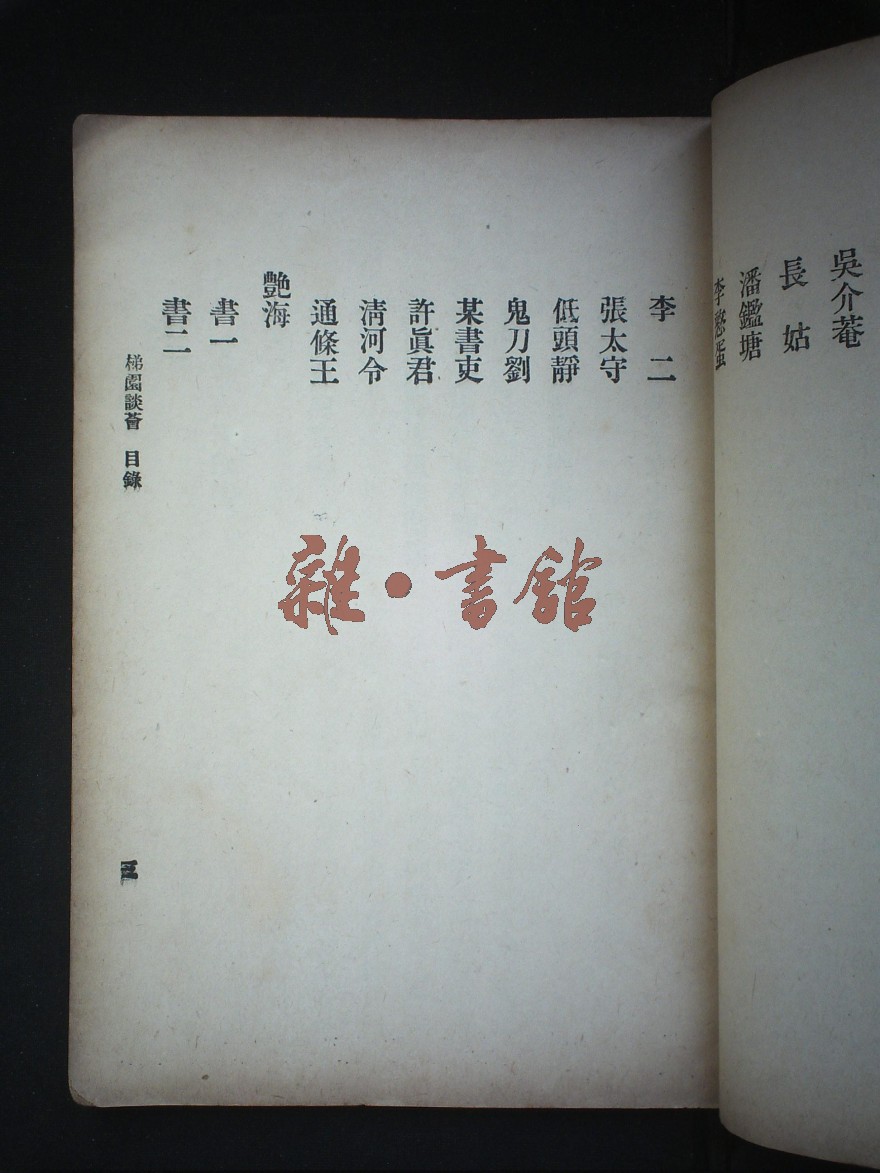 吳介菴
長姑
潘鑑塘
李憨蛋
李二
張太守
低頭靜
鬼刀劉
某書吏
許眞君
淸河令
通條王
艷海
書一
書二
梯園談薈 目錄
三
雜·書館